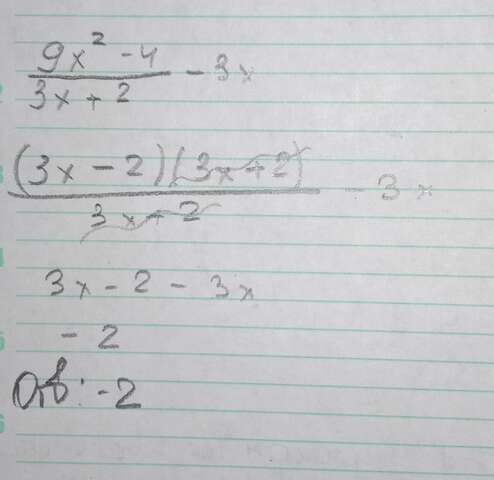 9x² - 4 / 3x + 2 - 3x
(3x - 2)(3x + 2) / 3x + 2 - 3x
3x - 2 - 3x
- 2
Отв: -2